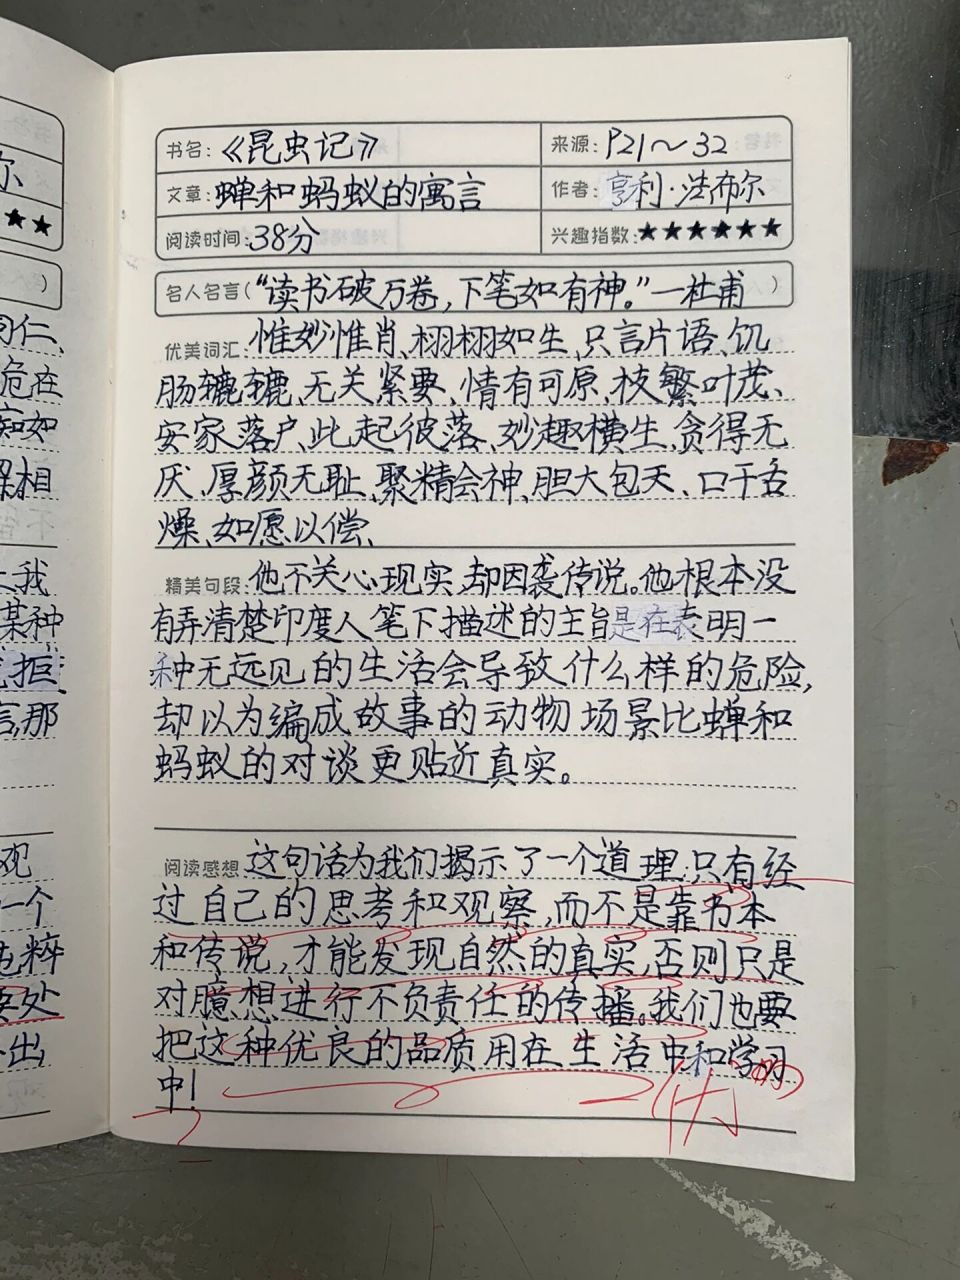 尔
★★
）
同仁、
危在
痴如
深相
我
某种
拒
言,那
观
一个
粹
要处
出
书名：《昆虫记》 来源：P21～32
文章：蝉和蚂蚁的寓言 作者：亨利·法布尔
阅读时间：38分 兴趣指数：★★★★★★
名人名言（“读书破万卷，下笔如有神。”—杜甫）
优美词汇：惟妙惟肖、栩栩如生、只言片语、饥
肠辘辘、无关紧要、情有可原、枝繁叶茂、
安家落户、此起彼落、妙趣横生、贪得无
厌、厚颜无耻、聚精会神、胆大包天、口干舌
燥、如愿以偿、
精美句段：他不关心现实,却因袭传说。他根本没
有弄清楚印度人笔下描述的主旨是在表明一
种无远见的生活会导致什么样的危险,
却以为编成故事的动物场景比蝉和
蚂蚁的对谈更贴近真实。
阅读感想：这句话为我们揭示了一个道理,只有经
过自己的思考和观察,而不是靠书本
和传说,才能发现自然的真实,否则只是
对臆想进行不负责任的传播。我们也要
把这种优良的品质用在生活中和学习
中!
优